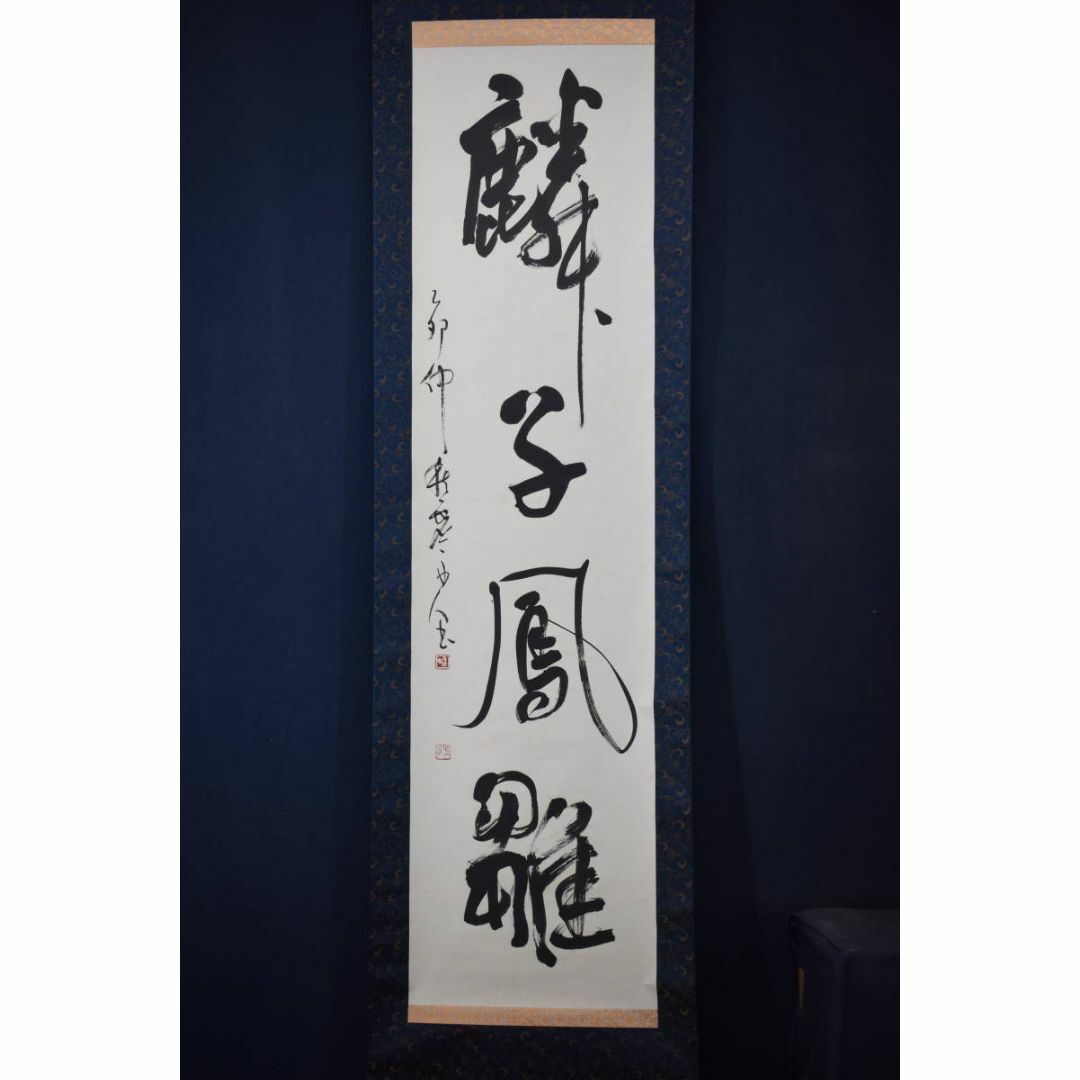 麟子鳳雛
乙卯仲秋